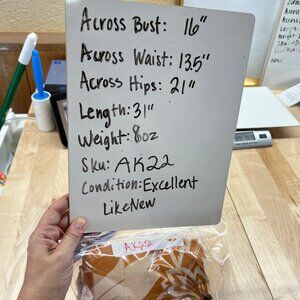 Across Bust: 16"
Across Waist: 13.5"
Across Hips: 21"
Length: 31"
Weight: 8oz
Sku: AK22
Condition: Excellent
Like New
AK22